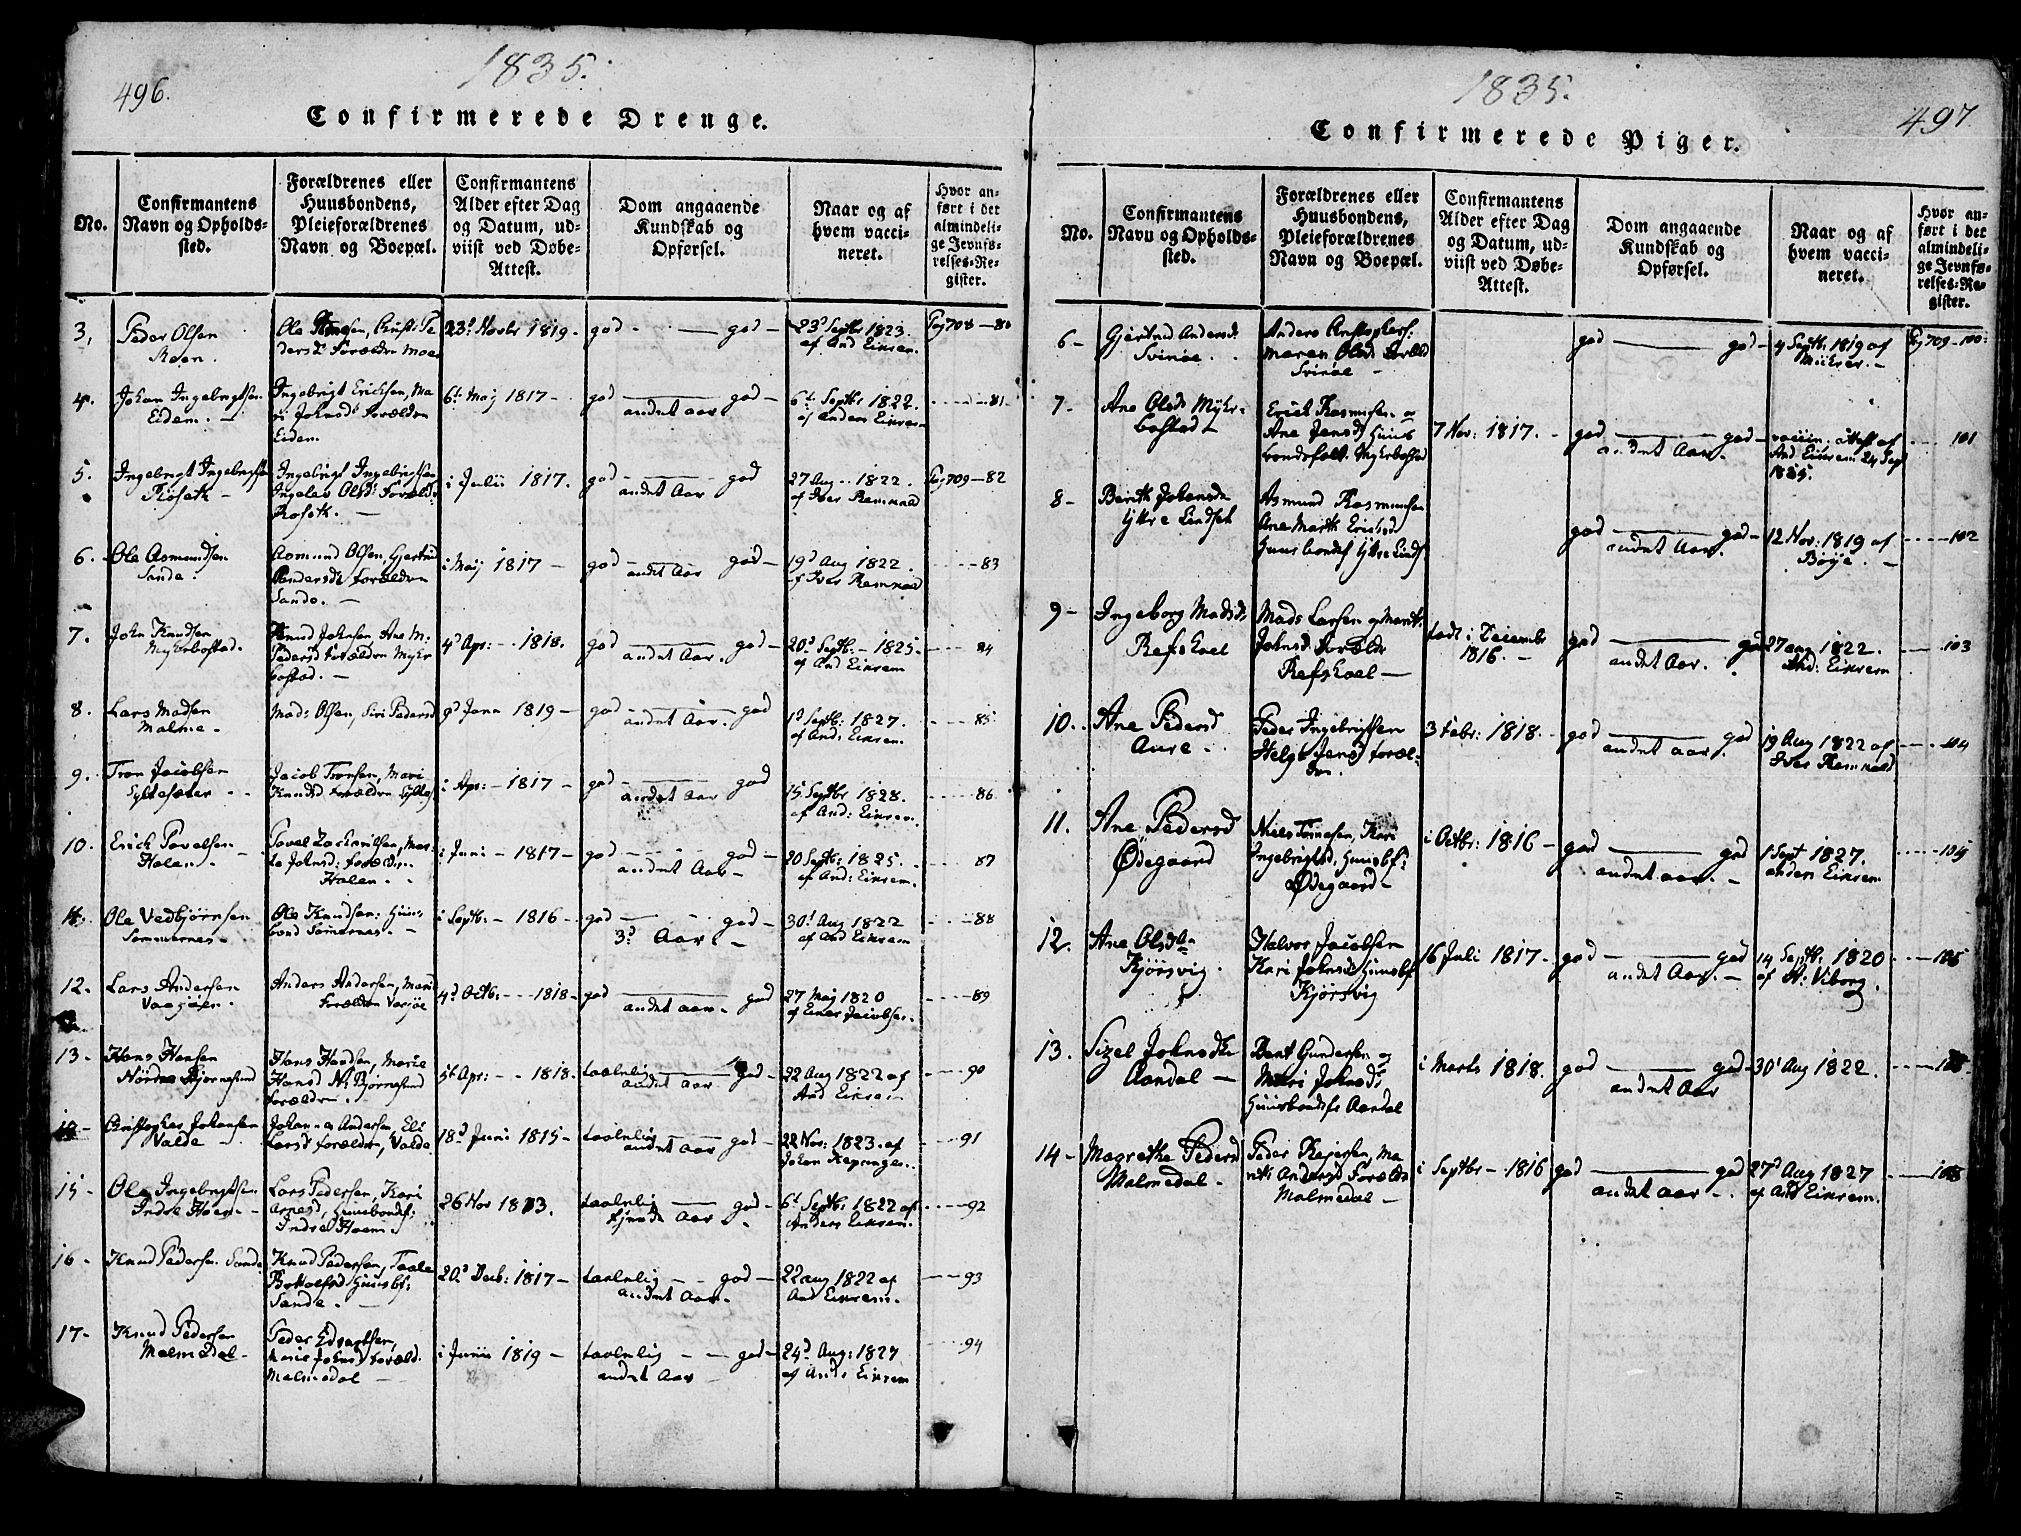 496.
1835.
Confirmerede Drenge.
No.
Confirmantens
Navn og Opholds-
sted.
Forældrenes eller
Huusbondens,
Pleieforældrenes
Navn og Boepæl.
Confirmantens
Alder efter Dag
og Datum, ud-
viist ved Døbe-
Attest.
Dom angaaende
Kundskab og
Opførsel.
Naar og af
hvem vacci-
neret.
Hvor an-
ført i det
almindeli-
ge Jevnfø-
relses-Re-
gister.
3,
Peder Olsen
Moen.
Ole
dersd: Forældre Moen
23d Novbr 1819.
god - god -
23d Septbr 1823.
af And Eikrem.
Pag 708 - 80
4.
Johan Ingebrigtsen
Eidem. -
Ingebrigt Ericksen, Ma-
ri Johnsd: Forældre
Eidem.
6t Maj 1817 -
god - god -
andet aar
6t Septbr 1822.
af Anders Eikrem
81
5.
Ingebrigt Ingebrigtsen
Roseth -
Ingebrigt Ingebrigtsen
Ingelev Olsd: Foræld:
Roseth. -
i Julii 1817.
god - god
andet Aar
27 Aug 1822.
af Iver Remmald
Pag 709 - 82
6.
Ole Asmundsen
Sande.
Asmund Olsen, Gjertrud
Andersd: Forældre
Sande. -
i Maij 1817 -
god - god -
andet Aar
19d Aug 1822.
af Iver Remmald
83
7.
John Knudsen
Myklebostad.
Knud Johnsen, Ane M.
Pedersd Forældre Mykle
bostad. -
4d Apr: - 1818.
god - god -
andet Aar.
20d Septb: - 1825.
af And Eikrem
84
8.
Lars Madsen
Malme -
Mads Olsen, Siri Pedersd
9d Janr 1819 -
god - god
andet Aar.
1d Septb: 1827.
af And: Eikrem.
85
9.
Tron Jacobsen
Syltesæter -
Jacob Tronsen, Mari
Knudsd Forældre Syltes
i Apr: - 1817 -
god - god
andet Aar
15 Septbr 1828.
af And: Eikrem.
86
10.
Erick Povelsen
Halen. -
Povel Zachrisen, Mar-
te Johnsd: Forældre.
Halen.
i Juni - 1817 -
god - god -
andet Aar -
20 Septb: 1825.
af And: Eikrem.
87
11.
Ole Vedbjørnsen
Sommernes -
Ole Knudsen: Huus-
bond Somernes. -
i Septb: - 1816 -
god - god -
3d Aar. -
30t Aug 1822
af And Eikrem
88
12.
Lars Andersen
Vaagøen.
Anders Andersen, Mari
Forældre Vaagøe
4d Octb: - 1818 -
god - god
andet aar.
27 Maj 1820
af Einer Jacobsen.
89
13 -
Hans Hansen
Nørdre Bjørnesund
Hans Hansen, Marie
Hansd N: Bjørnesund
Forældre.
5t Apr: - 1818.
taalelig - god -
andet aar
22 Aug 1822 af
And Eikrem
90
14 -
Christopher Johansen
Valde -
Johannes Andersen, Eli
Larsd Forældre, Valde
18d Juni 1815 -
taalelig - god -
andet Aar
22 Nov: 1823. af
Johan
91
15 -
Ole Ingebrigtsen
Indre Hoem -
Lars Pedersen, Kari
Arnesd, Huusbondf:
Indre Hoem.
26 Nov 1813.
taalelig - god -
fjerde Aar
6t Septbr 1822 af
Anders Eikrem.
92
16 -
Knud Pedersen Sande
Knud Pedersen,
Huusbf:
Sande. -
20d Decb: 1817 -
taalelig - god -
andet Aar.
22 aug 1822 af
And Eikrem.
93
17 -
Knud Pedersen
Malmedal -
Peder Edvartsen,
Marie Johnsd Foræld.
Malmedal -
i Junii 1819 -
taalelig - god -
andet Aar -
24d Aug: 1827
af And: Eikrem
94
1835.
497.
Confirmerede Piger.
No.
Confirmantens
Navn og Opholds-
sted.
Forældrenes eller
Huusbondens,
Pleieforældrenes
Navn og Boepæl.
Confirmantens
Alder efter Dag
og Datum, ud-
viist ved Døbe-
Attest.
Dom angaaende
Kundskab og
Opførsel.
Naar og af
hvem vacci-
neret.
Hvor an-
ført i det
almindeli-
ge Jevnfø-
relses-Re-
gister.
6 -
Gjertrud Andersd:
Svinøe.
Anders Christophers:
Maren Olsd Foræld
Svinøe -
god - god -
4 Septb: 1819 af
Pag 709 - 100:
7.
Ane Olsd: Mykle-
bostad -
Erick Rasmusen og
Ane Jensd Huus
bondsfolk. Myklebostad
7 Nov: 1817. -
god - god -
andet Aar.
vaccin: Attest af
And Eikrem 24 Sept
1835.
101
8 -
Berith Johansd:
Yttre Lindset
Asmund Rasmusen
Ane Marth Ericksd
Huusbondsf Yttre Linds
god - god -
andet Aar.
12 Nov. 1819 af
Bøye. -
102
9 -
Ingeborg Madsd:
Refshoel
Mads Larsen og Marith
Johnsd: Forældre
Refshoel -
født i Decembr
1816. -
god - god
andet Aar.
27 aug 1822.
And: Eikrem
103
10.
Ane Pedersd
Aure -
Peder Ingebrigtsen
Helge Jensd Foræl-
dre.
3 Febr: 1818.
god - god
andet aar.
19 Aug 1822 af
Iver Remmald
104
11.
Ane Pedersd
Ødegaard
Niels Tomesen, Kari
Ingebrigtsd, Huusbf:
Ødegaard -
i Octbr: 1816 -
god - god
andet aar. -
1 Sept 1827.
anders Eikrem
105
12.
Ane Olsd:
Kjørsvig.
Halvor Jacobsen
Kari Johnsd Huusbf
Kjørsvig
16 Juli 1817 -
god - god
andet Aar. -
14 Septb: 1820
af H: Viborg.
13.
Sizel Johnsd:
Aandal -
Bent Gundersen og
Mari Johnsd:
Huusbondsf: Aandal
i Marts 1818.
god - god -
andet Aar
30t Aug 1822.
14 -
Magrethe Pedersd
Malmedal -
Peder Rejersen, Ma
rith Andersd Foræld:
Malmedal -
i Septbr - 1816
god - god
andet aar -
27d Aug 1827
af And Eikrem.